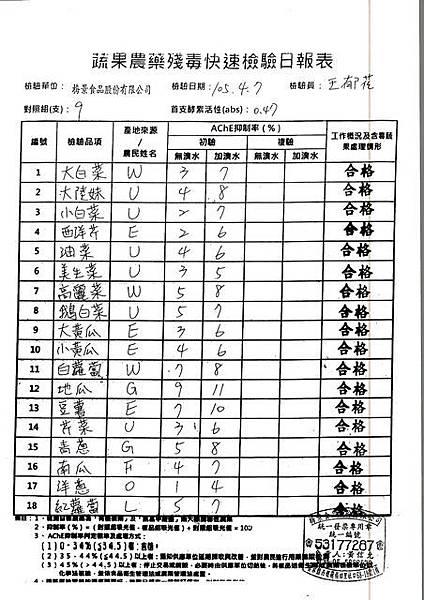 蔬果農藥殘毒快速檢驗日報表
檢驗單位：裕景食品股份有限公司 檢驗日期：105.4.7 檢驗員：王郁花
對照組(支)：9 首支酵素活性(abs)：0.47
編號 檢驗品項 產地來源/農民姓名 AChE抑制率(%) 工作概況及含毒蔬果處理情形
初驗 複驗
無滴水 加滴水 無滴水 加滴水
1 大白菜 W 3 7 合格
2 大陸妹 U 4 8 合格
3 小白菜 U 2 7 合格
4 西洋芹 E 2 6 合格
5 油菜 U 4 6 合格
6 美生菜 U 3 5 合格
7 高麗菜 W 5 8 合格
8 鵝白菜 U 5 7 合格
9 大黃瓜 E 3 6 合格
10 小黃瓜 E 4 6 合格
11 白蘿蔔 W 7 8 合格
12 地瓜 G 9 11 合格
13 豆薯 E 7 10 合格
14 芹菜 U 3 6 合格
15 青蔥 G 5 8 合格
16 南瓜 F 4 7 合格
17 洋蔥 O 1 4 合格
18 紅蘿蔔 L 5 7 合格
2、抑制率(%)=(對照組吸光值-樣品組吸光值)÷對照組吸光值×100
3、AChE抑制率判定標準及處理：
(1)0-34%(≦34.5)者：合格，
統一發票專用章
統一編號
53177287